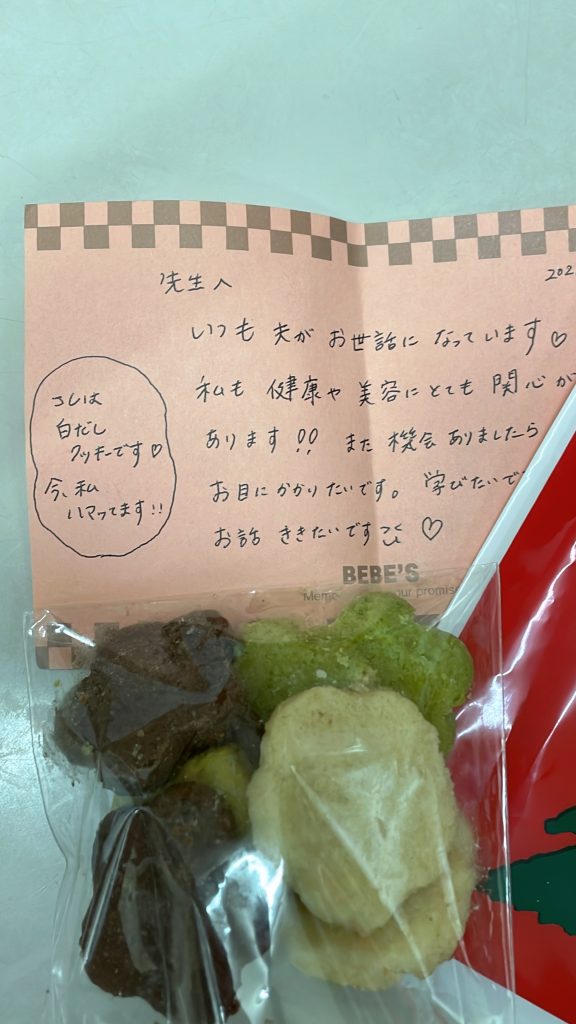 先生へ
202
いつも 夫が お世話に なっています♡
私も 健康や 美容に とても 関心が
あります!! また 機会 ありましたら
お目に かかりたいです。 学びたいで
お話 ききたいです ♡
コレは
白だし
クッキーです♡
今、私
ハマってます!!
BEBE'S
Memo our promise